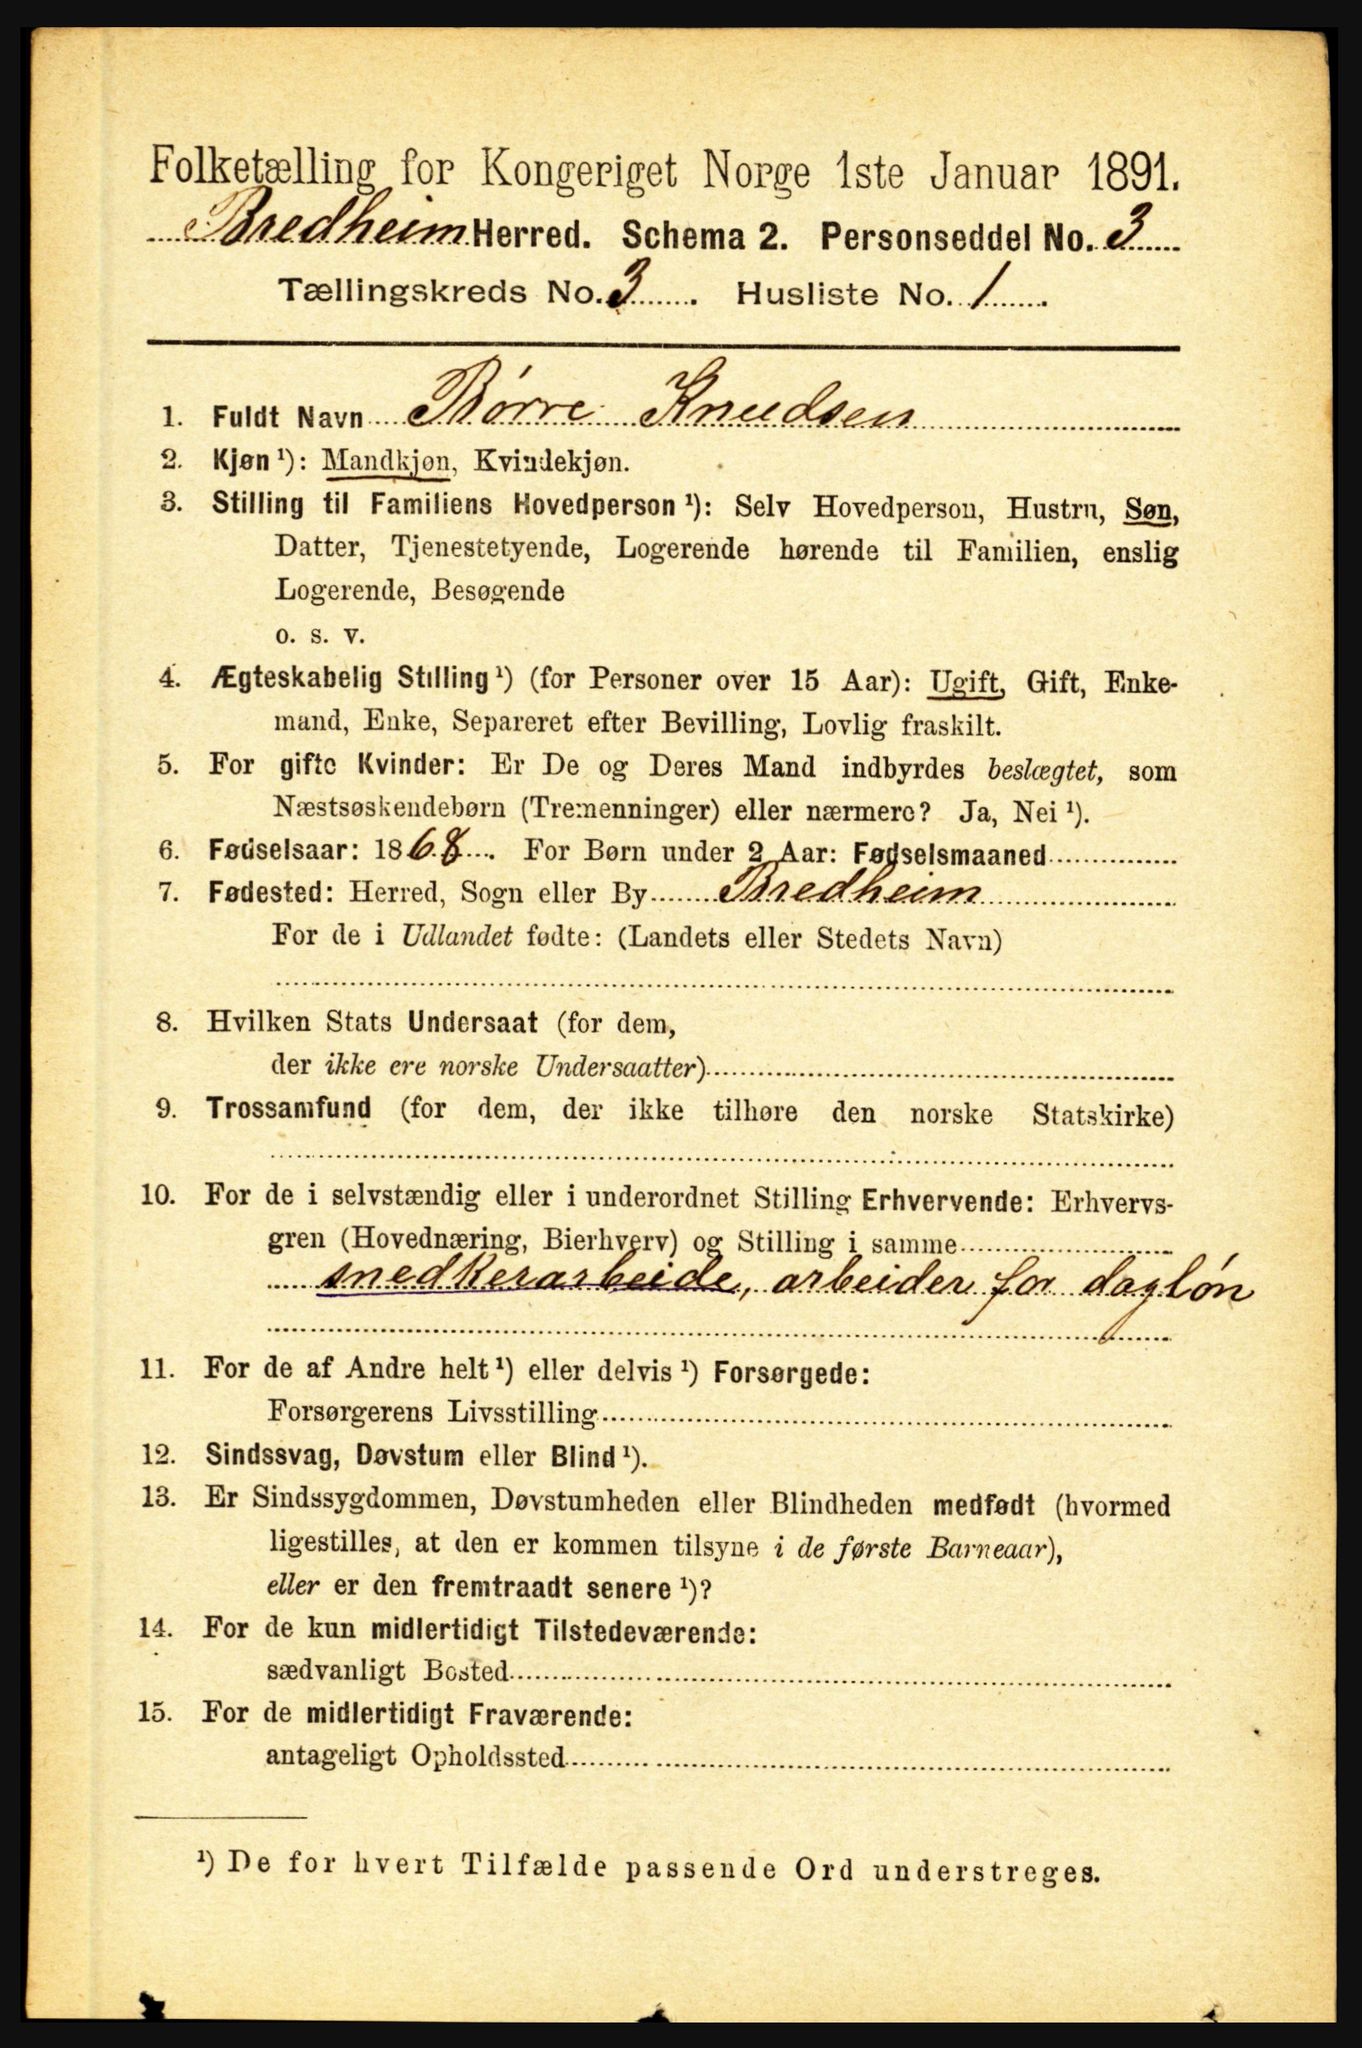 Folketælling for Kongeriget Norge 1ste Januar 1891.
Bredheim Herred. Schema 2. Personseddel No. 3
Tællingskreds No. 3. Husliste No. 1.
1. Fuldt Navn Børre Knudsen
2. Kjøn ¹): Mandkjøn, Kvindekjøn.
3. Stilling til Familiens Hovedperson ¹): Selv Hovedperson, Hustru, Søn,
Datter, Tjenestetyende, Logerende hørende til Familien, enslig
Logerende, Besøgende
o. s. v.
4. Ægteskabelig Stilling ¹) (for Personer over 15 Aar): Ugift, Gift, Enke-
mand, Enke, Separeret efter Bevilling, Lovlig fraskilt.
5. For gifte Kvinder: Er De og Deres Mand indbyrdes beslægtet, som
Næstsøskendebørn (Tremenninger) eller nærmere? Ja, Nei ¹).
6. Fødselsaar: 1868. For Børn under 2 Aar: Fødselsmaaned
7. Fødested: Herred, Sogn eller By Bredheim
For de i Udlandet fødte: (Landets eller Stedets Navn)
8. Hvilken Stats Undersaat (for dem,
der ikke ere norske Undersaatter)
9. Trossamfund (for dem, der ikke tilhøre den norske Statskirke)
10. For de i selvstændig eller i underordnet Stilling Erhvervende: Erhvervs-
gren (Hovednæring, Bierhverv) og Stilling i samme
snedkerarbeide, arbeider for dagløn
11. For de af Andre helt ¹) eller delvis ¹) Forsørgede:
Forsørgerens Livsstilling
12. Sindssvag, Døvstum eller Blind ¹).
13. Er Sindssygdommen, Døvstumheden eller Blindheden medfødt (hvormed
ligestilles, at den er kommen tilsyne i de første Barneaar),
eller er den fremtraadt senere ¹)?
14. For de kun midlertidigt Tilstedeværende:
sædvanligt Bosted
15. For de midlertidigt Fraværende:
antageligt Opholdssted
¹) De for hvert Tilfælde passende Ord understreges.